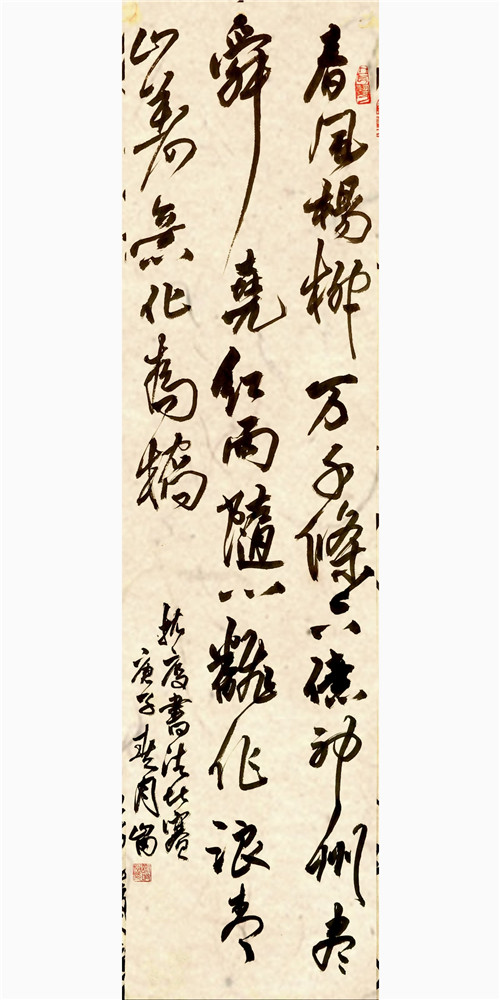 春風楊柳万千條六億神州尽
舜堯红雨隨心翻作浪青
山着意化為橋
抗疫書法比賽
庚子樊月崗